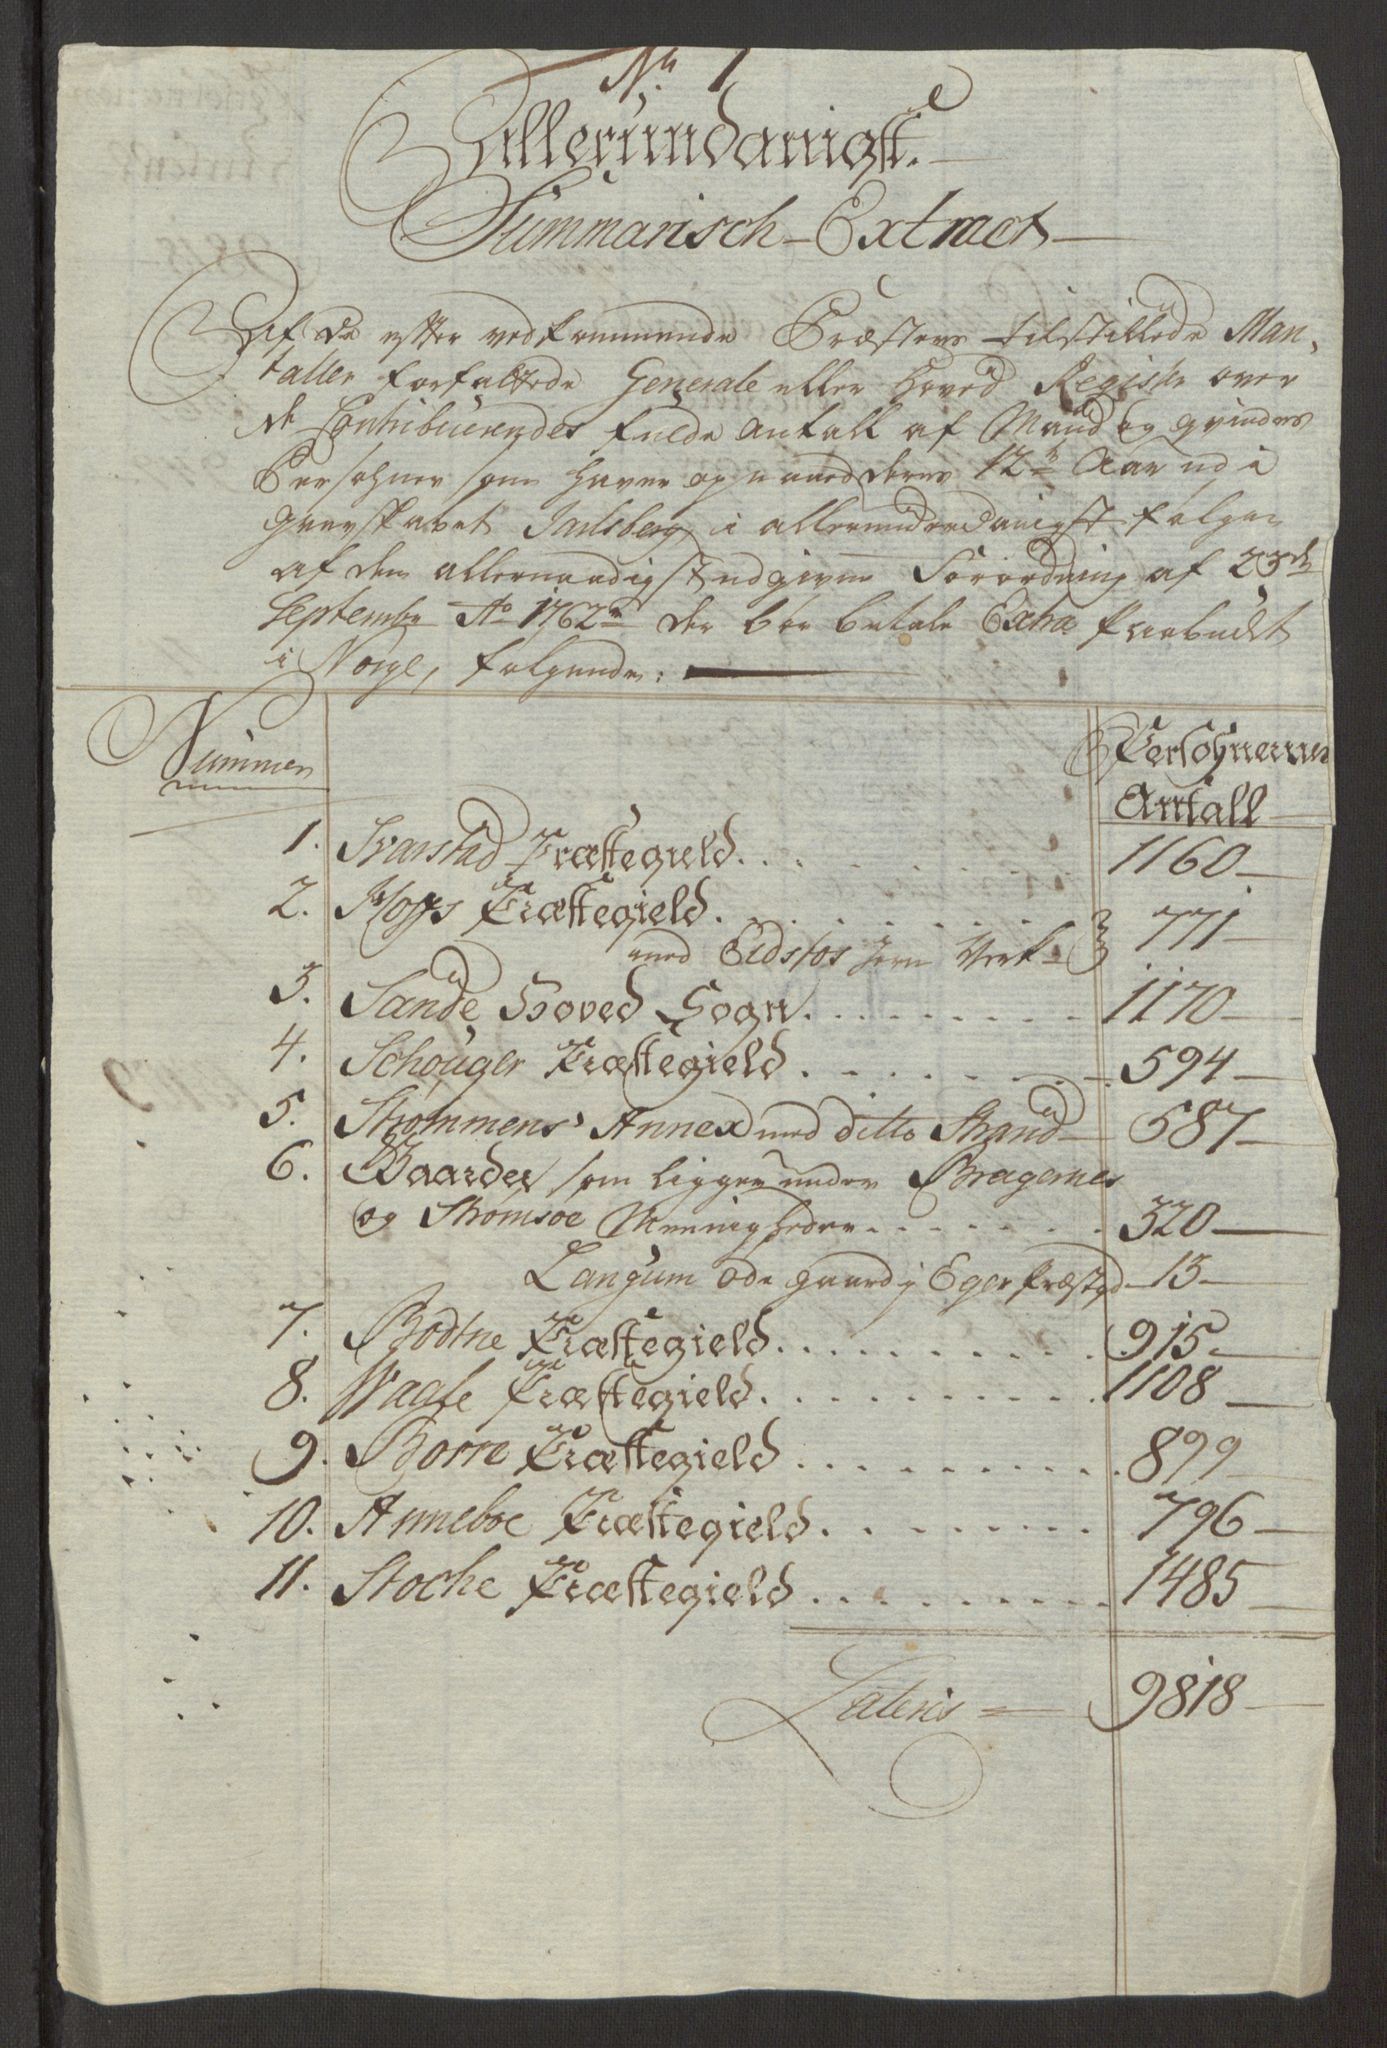 No. 1
Allerundanigst.
Summarisch Extract
Af de efter vedkommende Præsters tilstillede Man-
taller forfattede Generale eller Hoved Register over
de Contribuerendes fulde Antall af Mand og Qvinde
Persohner som haver opnaaed deres 12te Aar ud i
Grevskabet Jarlsberg, i allerunderdanigst følge
af den allernaadigst udgivne Forordning af 23de
Septembr Ao 1762 der bør betale Extra skatt
i Norge, følgende:
Nummer
Persohnernes
Antall
1. Svarstad Præstegield. 1160
2. Hoffs Præstegield. 771
med Eidsfos Jern Verk
3. Sande Hoved Sogn. 1170
4. Schouger Præstegield. 594
5. Strømmens Annex med ditto Strand 587
6. Gaarder som ligger under Bragernes
og Strømsøe Meenigheder 320
Langum øde gaard i Eger Præstgd 13
7. Bodtne Præstegield. 915
8. Waale Præstegield. 1108
9. Borre Præstegield 899
10. Anneboe Præstegield. 796
11. Stocke Præstegield 1485
Lateris 9818